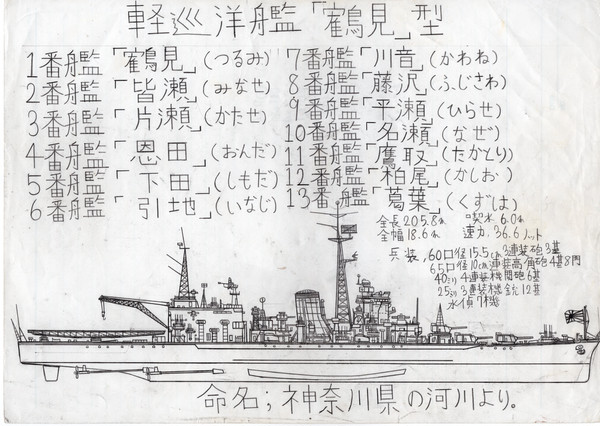 軽巡洋艦「鶴見」型
1番艦「鶴見」(つるみ)
2番艦「皆瀬」(みなせ)
3番艦「片瀬」(かたせ)
4番艦「恩田」(おんだ)
5番艦「下田」(しもだ)
6番艦「引地」(いなじ)
7番艦「川音」(かわね)
8番艦「藤沢」(ふじさわ)
9番艦「平瀬」(ひらせ)
10番艦「名瀬」(なぜ)
11番艦「鷹取」(たかとり)
12番艦「柏尾」(かしお)
13番艦「葛葉」(くずは)
全長205.8m 喫水6.0m
全幅18.6m 速力36.6ノット
兵装,60口径15.5cm3連装砲3基
65口径10cm連装高角砲4基8門
40ミリ4連装機関砲6基
25ミリ3連装機銃12基
水偵7機
命名;神奈川県の河川より。